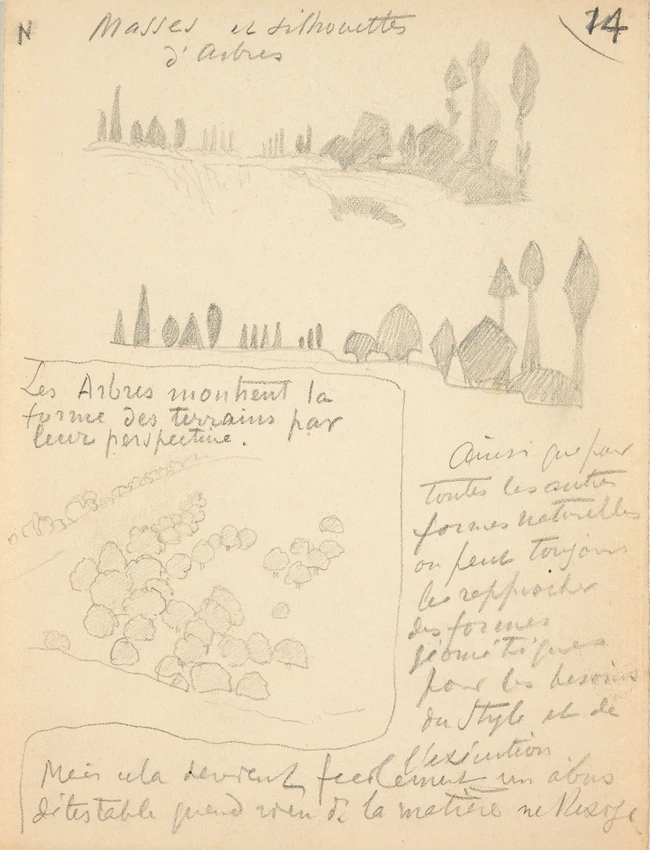 N
14
Masses et silhouettes
d'Arbres
Les Arbres montrent la
forme des terrains par
leur perspective.
Ainsi que pour
toutes les autres
formes naturelles
on peut toujours
les rapprocher
des formes
géométriques
pour les besoins
du Style et de
l'exécution
Mais cela devient facilement un abus
détestable quand rien de la matière ne